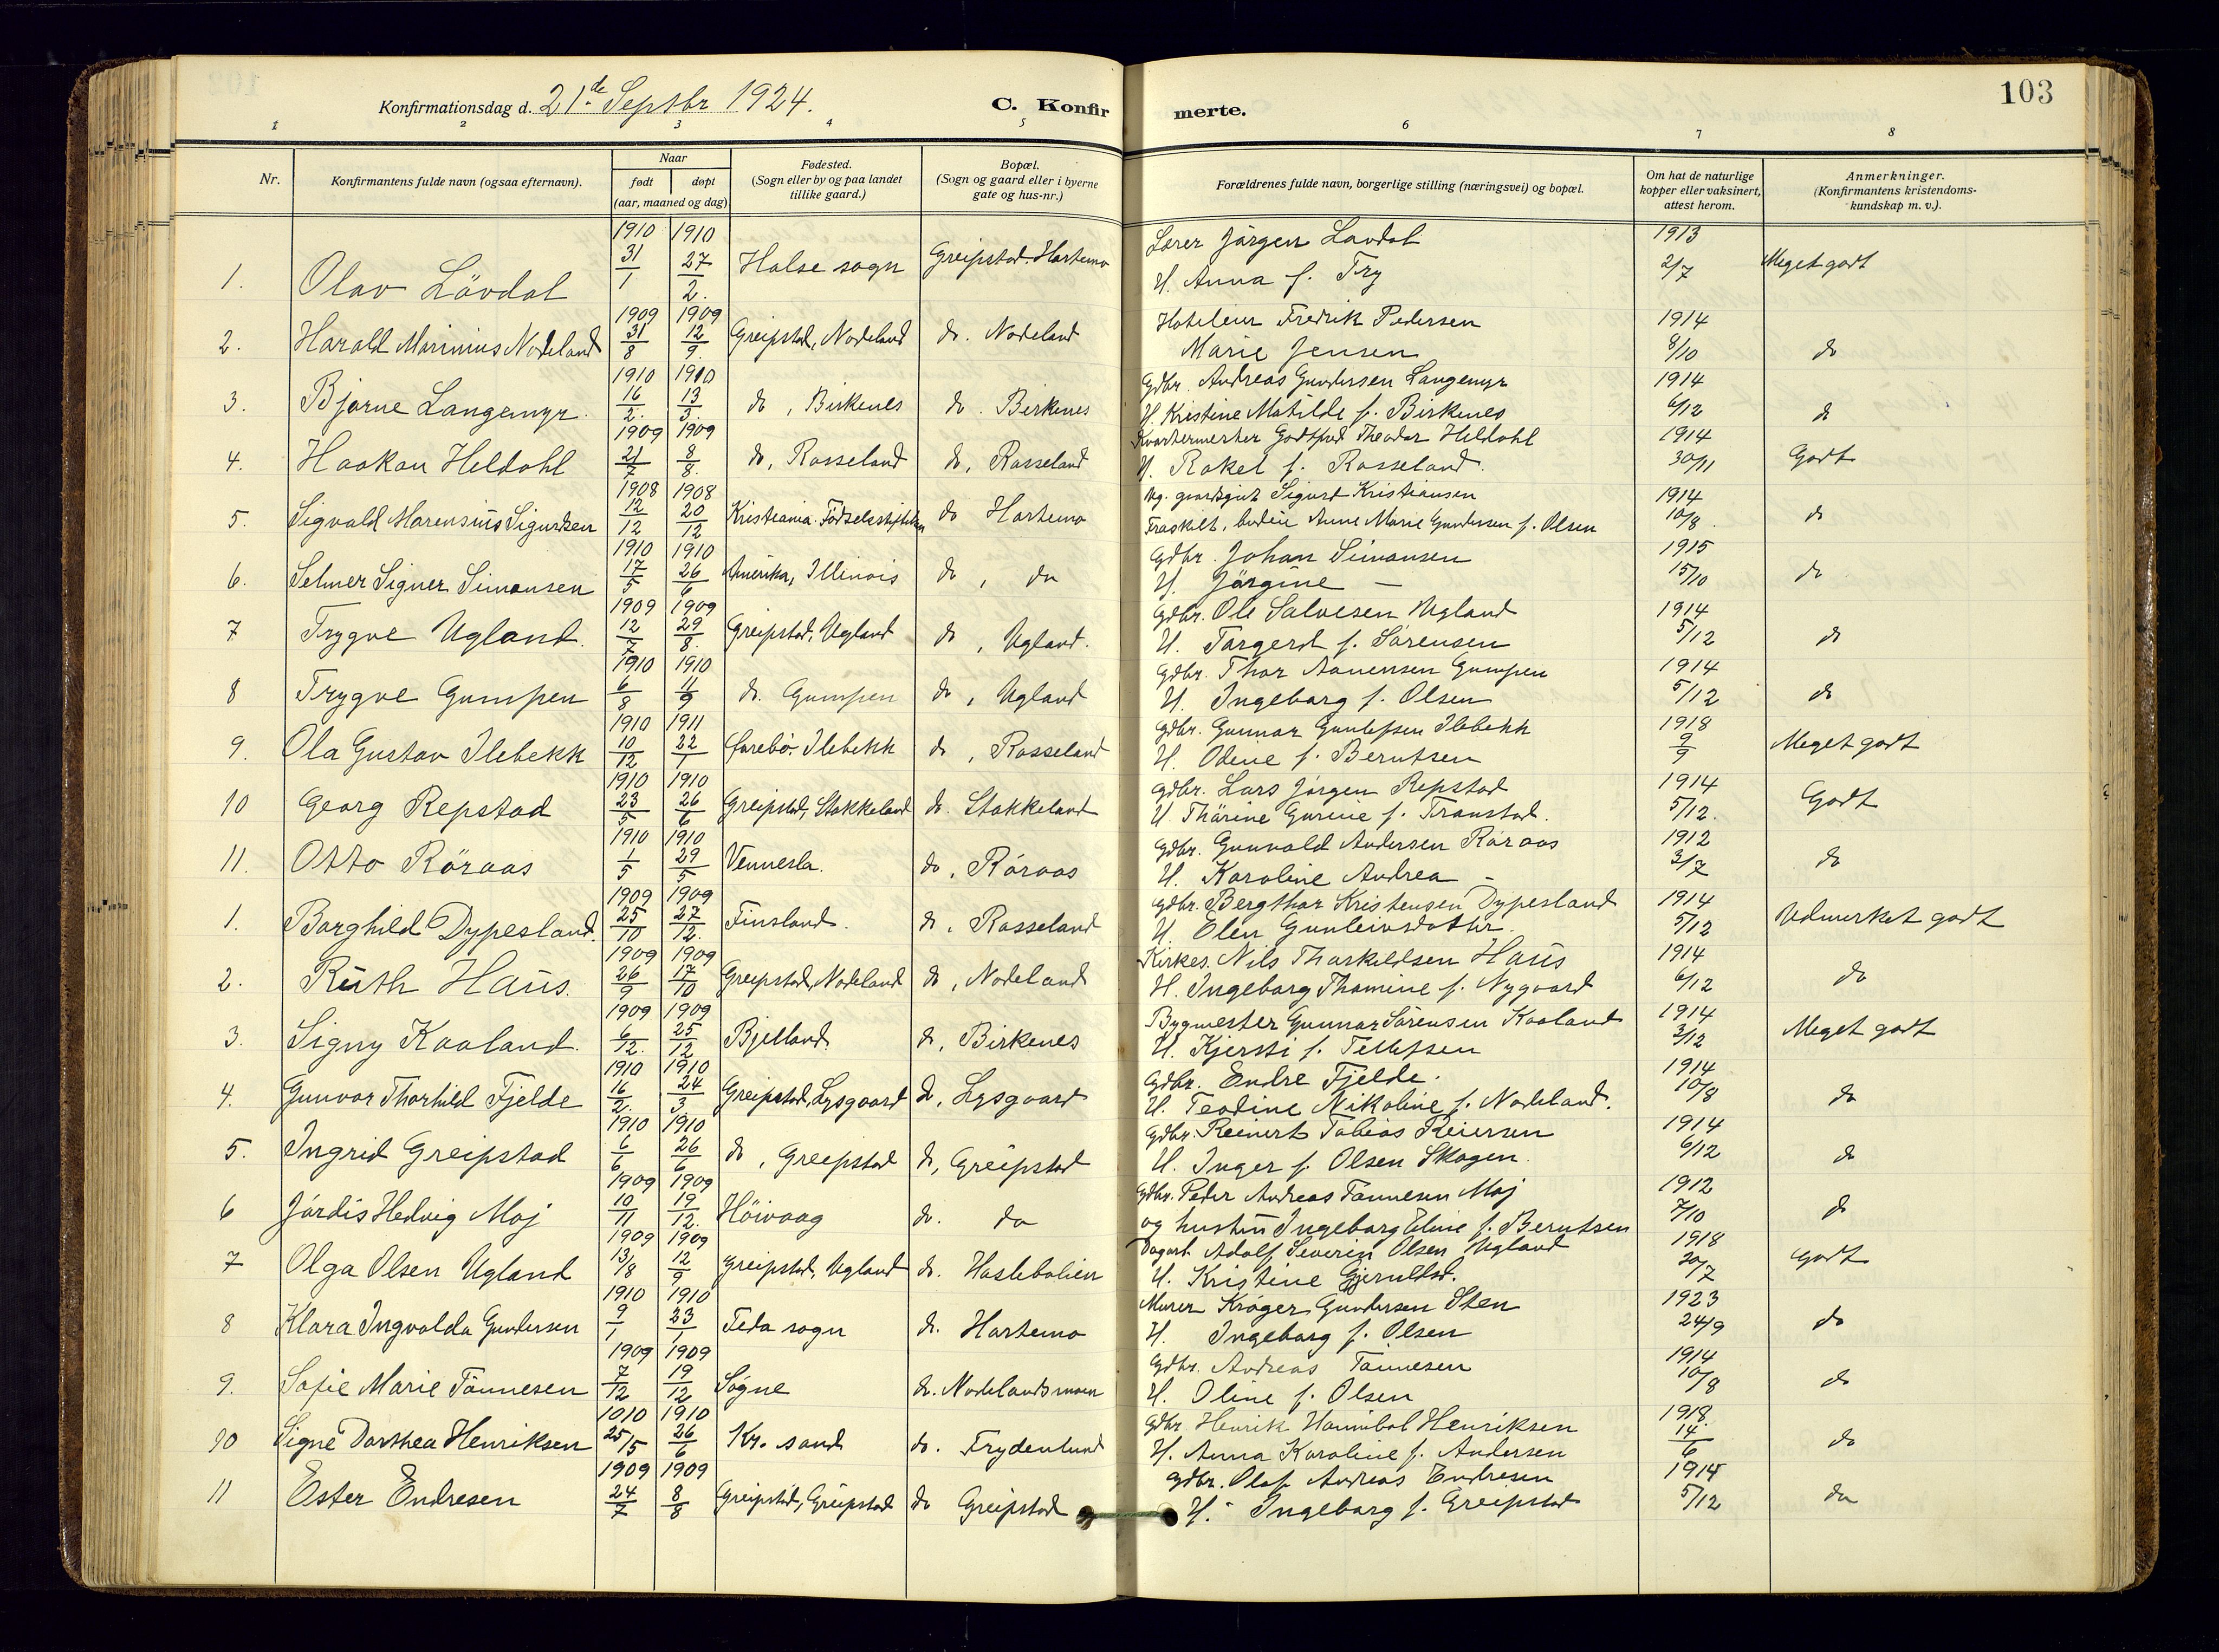 Konfirmationsdag d. 21de Septbr 1924.
C. Konfirmerte.
103
1 2 3 4 5 6 7 8
Nr.
Konfirmantens fulde navn (ogsaa efternavn).
Naar
født døpt
(aar, maaned og dag)
Fødested.
(Sogn eller by og paa landet
tillike gaard.)
Bopæl.
(Sogn og gaard eller i byerne
gate og hus-nr.)
Forældrenes fulde navn, borgerlige stilling (næringsvei) og bopæl.
Om hat de naturlige
kopper eller vaksinert,
attest herom.
Anmerkninger.
(Konfirmantens kristendoms-
kundskap m. v.).
1910 1910 Lærer Jörgen Lavdal 1913
1. Olav Lövdal 31/1 27/2. Halse sogn Greipstad. Hortemo H. Anna f. Try 2/7 Meget godt
1909 1909 Fredrik Pedersen 1914
2. Harald Marinius Nodeland 31/8 12/9. Greipstad, Nodeland do. Nodeland Marie Jensen 8/10 do
1910 1910 Gdbr. Andreas Gundersen Langemyr 1914
3. Bjarne Langemyr. 16/2. 13/3. do, Birkenes do. Birkenes H. Kristine Matilde f. Birkenes 6/12 do
1909 1909 Kvartermester Godtfred Theodor Heldahl 1914
4. Haakon Heldahl 21/7 8/8. do, Rosseland do, Rosseland H. Rakel f. Rosseland. 30/11 Godt
1908 1908 Ug. gaardsgut Sigurd Kristiansen 1914
5. Sigvald Marensius Sigurdsen 12/12 20/12 Kristiania. do Hortemo Fraskilt, Anne Marie Gundersen f. Olsen 10/8. do
1910 1910 Gdbr. Johan Simonsen 1915
6. Selmer Signer Simonsen 17/5 26/6 Amerika, Illinois do, do H. Jörgine — 15/10 do
1909 1909 Gdbr. Ole Salvesen Ugland 1914
7 Trygve Ugland. 12/7 29/8. Greipstad, Ugland do, Ugland. H. Torgerd f. Sörensen 5/12 do
1910 1910 Gdbr. Thor Aanensen Gumpen 1914
8 Trygve Gumpen 6/8 11/9 do. Gumpen do, Ugland H. Ingeborg f. Olsen 5/12 do
1910 1911 Gdbr. Gunnar Gunlefsen Ilebekk 1918
9. Ola Gustav Ilebekk 10/12 22/1 Ilebekk do, Rosseland H. Odine f. Berntsen 9/9 Meget godt
1910 1910 Gdbr. Lars Jörgen Repstad 1914
10 Georg Repstad 23/5 26/6 Greipstad, Stokkeland do. Stokkeland H. Thärine Gurine f. Transtad. 5/12. Godt
1910 1910 Gdbr. Gunvald Andersen Röraas 1912
11. Otto Röraas 1/5 29/5 Vennesla. do, Röraas H. Karoline Andrea - 3/7 do
1909 1909 Gdbr. Bergthor Kristensen Dypesland 1914
1. Borghild Dypesland. 25/10 27/12. Finsland. do. Rosseland H. Elen Gunleivsdatter. 5/12 Udmerket godt
1909 1909 Kirkes. Nils Thorkildsen Haus 1914
2. Ruth Haus. 26/9 17/10 Greipstad, Nodeland do, Nodeland H. Ingeborg Thomine f. Nygaard 6/12 do
1909 1909 Bygmester Gunnar Sörensen Kaaland 1914
3. Signy Kaaland. 6/12. 25/12 Bjelland. do, Birkenes H. Kjersti f. Tellefsen 3/12 Meget godt
1910 1910 Gdbr. Endre Fjelde. 1914
4. Gunvor Thorhild Fjelde 16/2. 24/3 Greipstad, Lysgaard do, Lysgaard H. Teodine Nikoline f. Nodeland. 10/8 do
1910 1910 Gdbr. Reinert Tobias Reiersen 1914
5. Ingrid Greipstad 6/6 26/6 do, Greipstad do, Greipstad H. Inger f. Olsen Skogen. 6/12 do
1909 1909 Gdbr. Peder Andreas Tönnesen Moj 1912
6 Jördis Hedvig Moj 10/11 19/12. Höivaag do. do og hustru Ingeborg Eline f. Berntsen 7/10 do
1909 1909 Dagarb. Adolf Severin Olsen Ugland 1918
7 Olga Olsen Ugland 13/8 12/9 Greipstad, Ugland do. Haslebalien H. Kristine Gjerulfsd. 20/7 Godt
1910 1910 Murer Kröger Gundersen Sten 1923
8 Klara Ingvalda Gundersen 9/1 23/1 Feda sogn do. Hortemo H. Ingeborg f. Olsen 24/9 do
1909 1909 Gdbr. Andreas Tönnesen 1914
9. Sofie Marie Tönnesen 7/12 19/12 Sögne do. Nodelandsmoen H. Oline f. Olsen 10/8 do
1010 1910 Gdbr. Henrik Hannibal Henriksen 1918.
10 Signe Dorthea Henriksen 25/5 26/6 Kr. sand do. Frydenlund H. Anna Karoline f. Andersen 14/6 do
1909 1909 Gdbr. Olaf Andreas Endresen 1914
11 Ester Endresen 24/7 8/8 Greipstad, Greipstad do Greipstad H. Ingeborg f. Greipstad 5/12 do